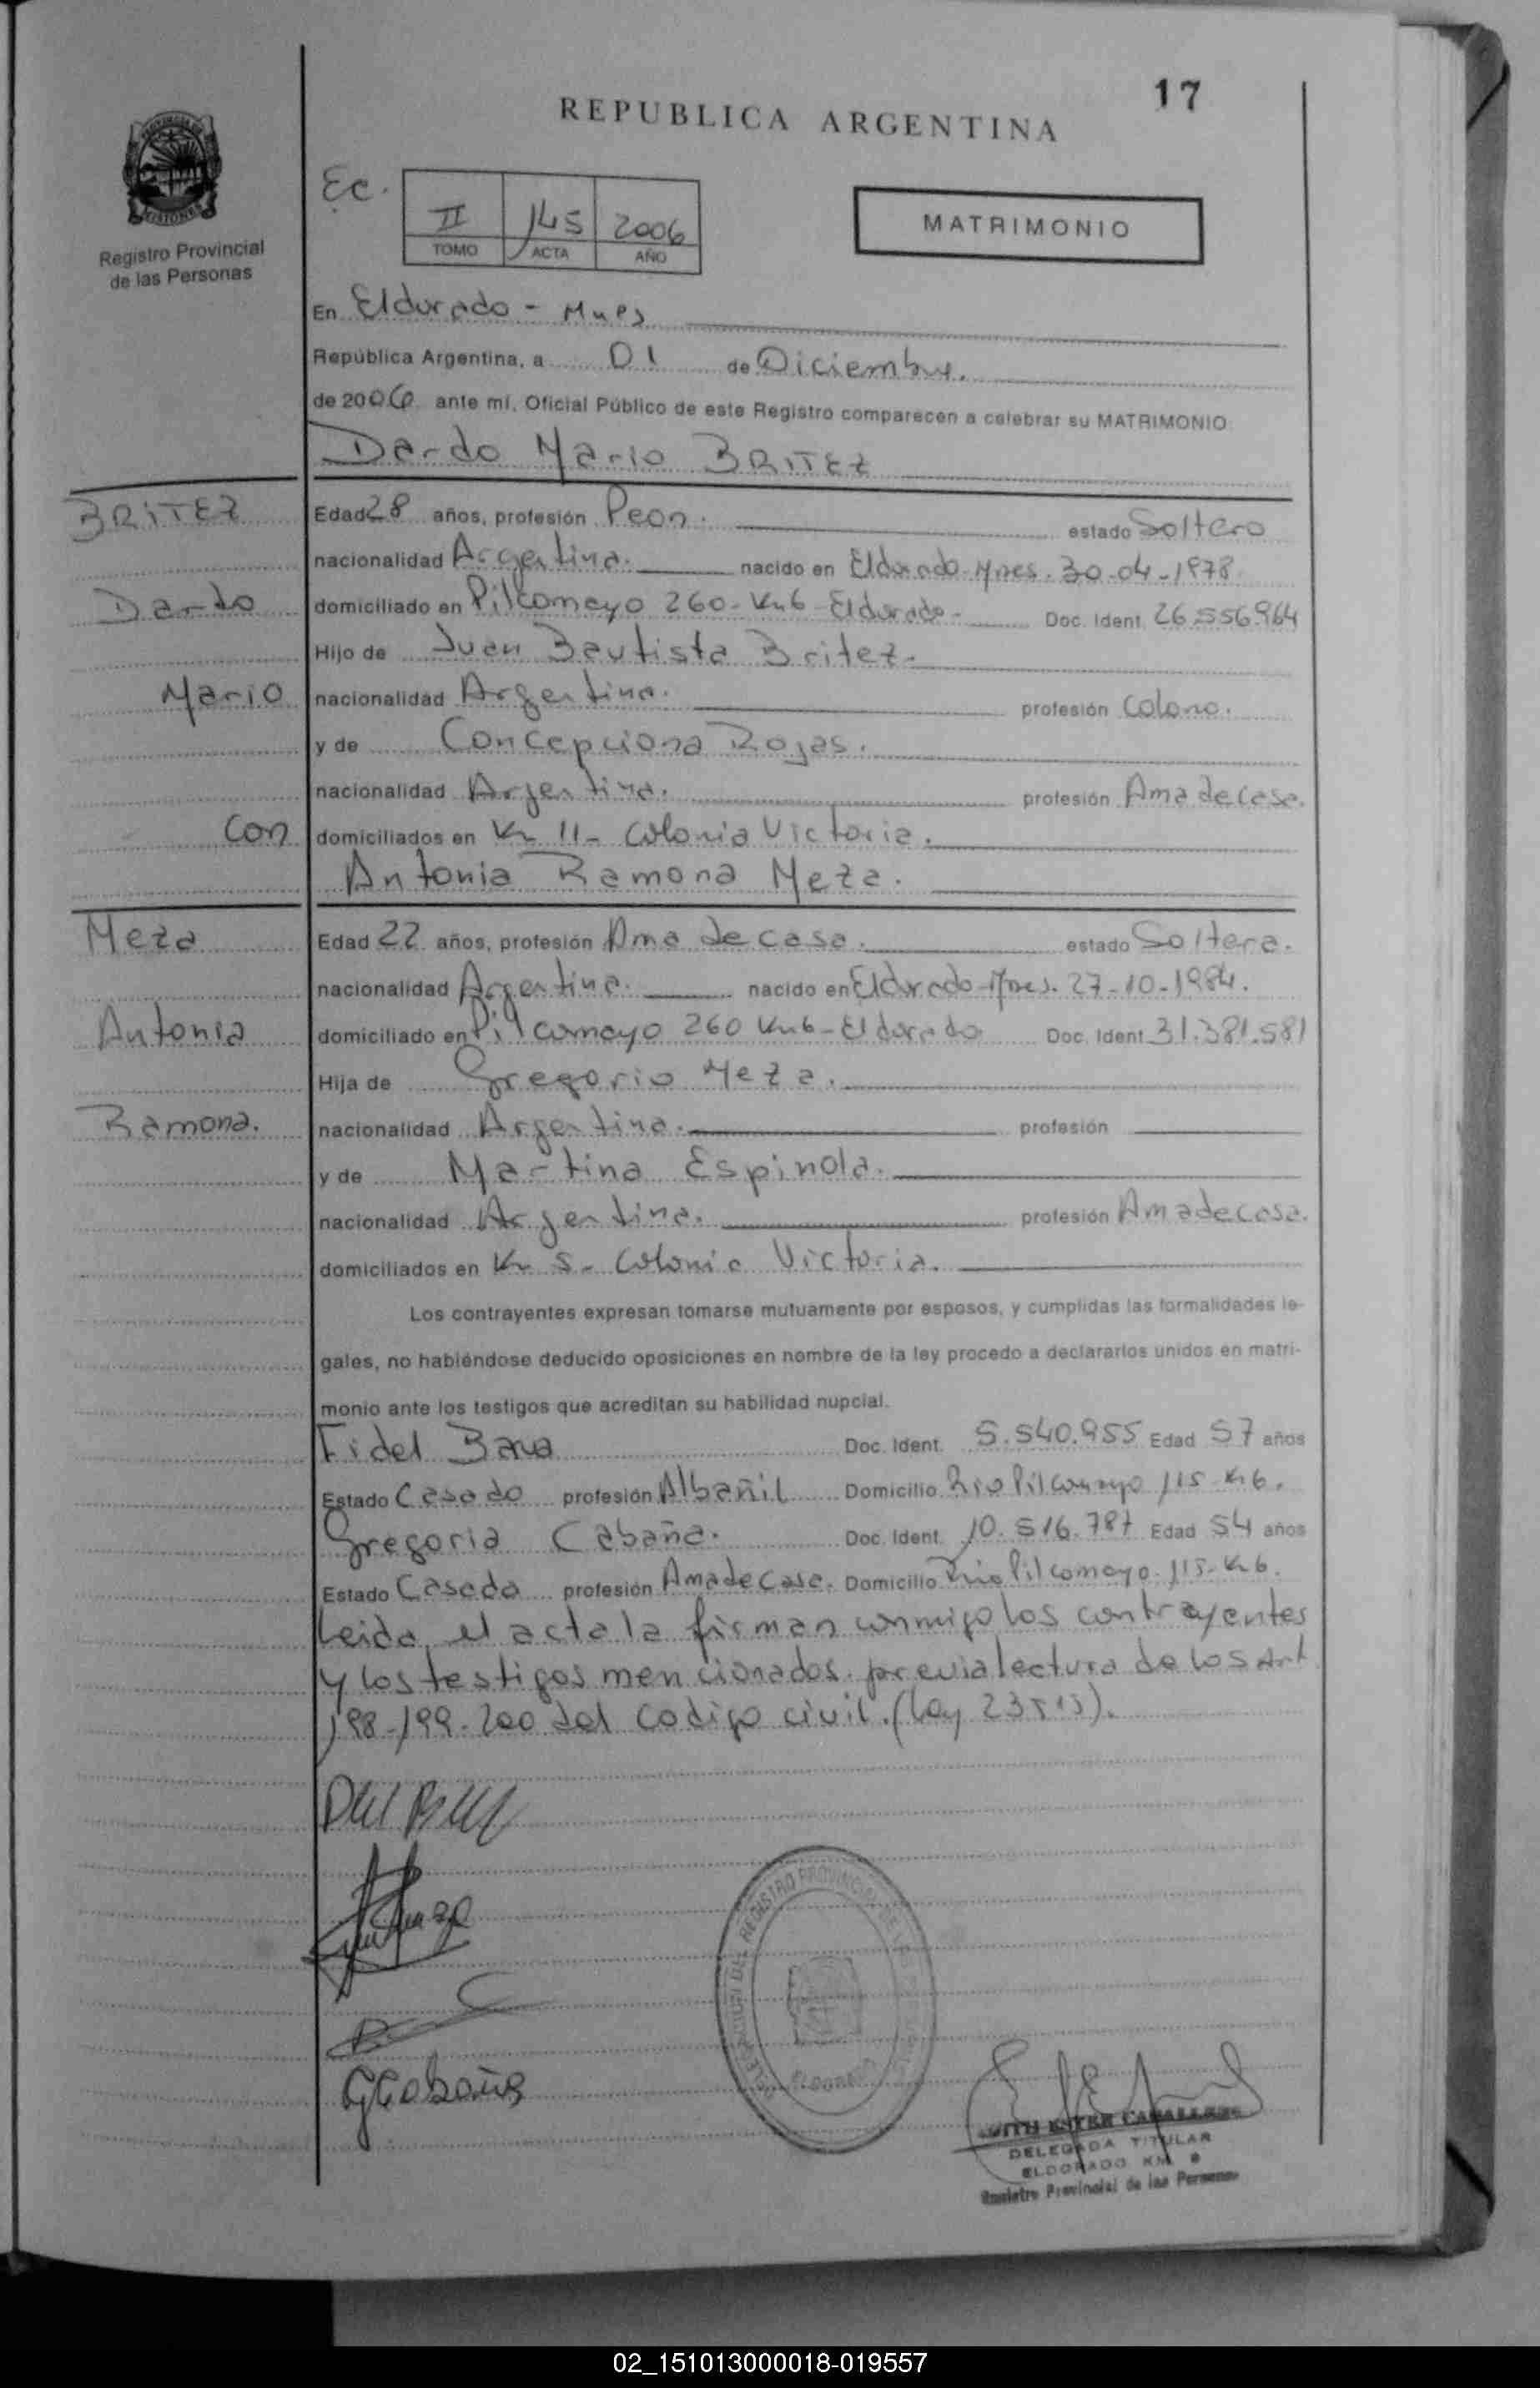 17
REPUBLICA ARGENTINA
PROVINCIA DE
MISIONES
Registro Provincial
de las Personas
Ec.
II 145 2006
TOMO ACTA AÑO
MATRIMONIO
En Eldorado - Mnes
República Argentina, a 01 de Diciembre.
de 2006 ante mí, Oficial Público de este Registro comparecen a celebrar su MATRIMONIO
Dardo Mario BRITEZ
BRITEZ
Edad 28 años, profesión Peon. estado Soltero
nacionalidad Argentina. nacido en Eldorado-Mnes. 30-04-1978.
Dardo
domiciliado en Pilcomayo 260-Km6-Eldorado- Doc. Ident. 26.556.964
Hijo de Juan Bautista Britez.
Mario
nacionalidad Argentina. profesión Colono.
y de Concepciona Rojas.
nacionalidad Argentina. profesión Ama de casa.
con
domiciliados en Km 11- Colonia Victoria.
Antonia Ramona Meza.
Meza
Edad 22 años, profesión Ama de casa. estado Soltera.
nacionalidad Argentina. nacido en Eldorado-Mnes. 27-10-1984.
Antonia
domiciliado en Pilcomayo 260 Km6-Eldorado Doc. Ident. 31.381.581
Hija de Gregorio Meza.
Ramona.
nacionalidad Argentina. profesión
y de Martina Espinola.
nacionalidad Argentina. profesión Ama de casa.
domiciliados en Km 5- Colonia Victoria.
Los contrayentes expresan tomarse mutuamente por esposos, y cumplidas las formalidades le-
gales, no habiéndose deducido oposiciones en nombre de la ley procedo a declararlos unidos en matri-
monio ante los testigos que acreditan su habilidad nupcial.
Fidel Doc. Ident. 5.540.955 Edad 57 años
Estado Casado profesión Albañil Domicilio Rio Pilcomayo 115-Km6.
Gregoria Cabaña. Doc. Ident. 10.516.787 Edad 54 años
Estado Casada profesión Ama de Casa. Domicilio Rio Pilcomayo 115-Km6.
Leida el acta la firman conmigo los contrayentes
y los testigos mencionados. previa lectura de los Art
198-199-200 del codigo civil. (Ley 23515).
GCabaña
DELEGACION DEL REGISTRO PROVINCIAL DE LAS PERSONAS
ELDORADO
ESTER CABALLERO
DELEGADA TITULAR
ELDORADO KM.
Registro Provincial de las Personas
02_151013000018-019557